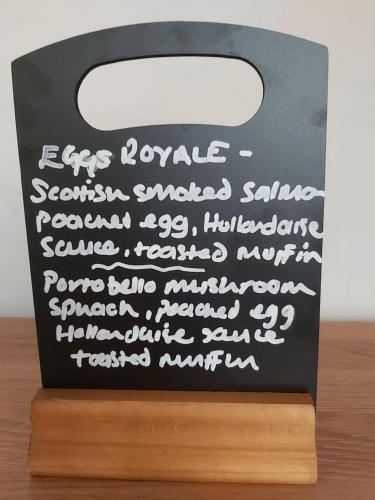 EGGS ROYALE -
Scottish smoked salmon
poached egg, Hollandaise
sauce, toasted muffin
Portobello mushroom
spinach, poached egg
Hollandaise sauce
toasted muffin